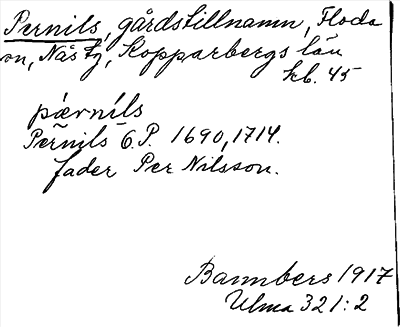 Pernils, gårdstillnamn, Floda
sn, Nås tg, Kopparbergs län
kb. 45
pǽrníls
Perñils O.P. 1690, 1714.
fader Per Nilsson.
Bannbers 1917
Ulma 321:2